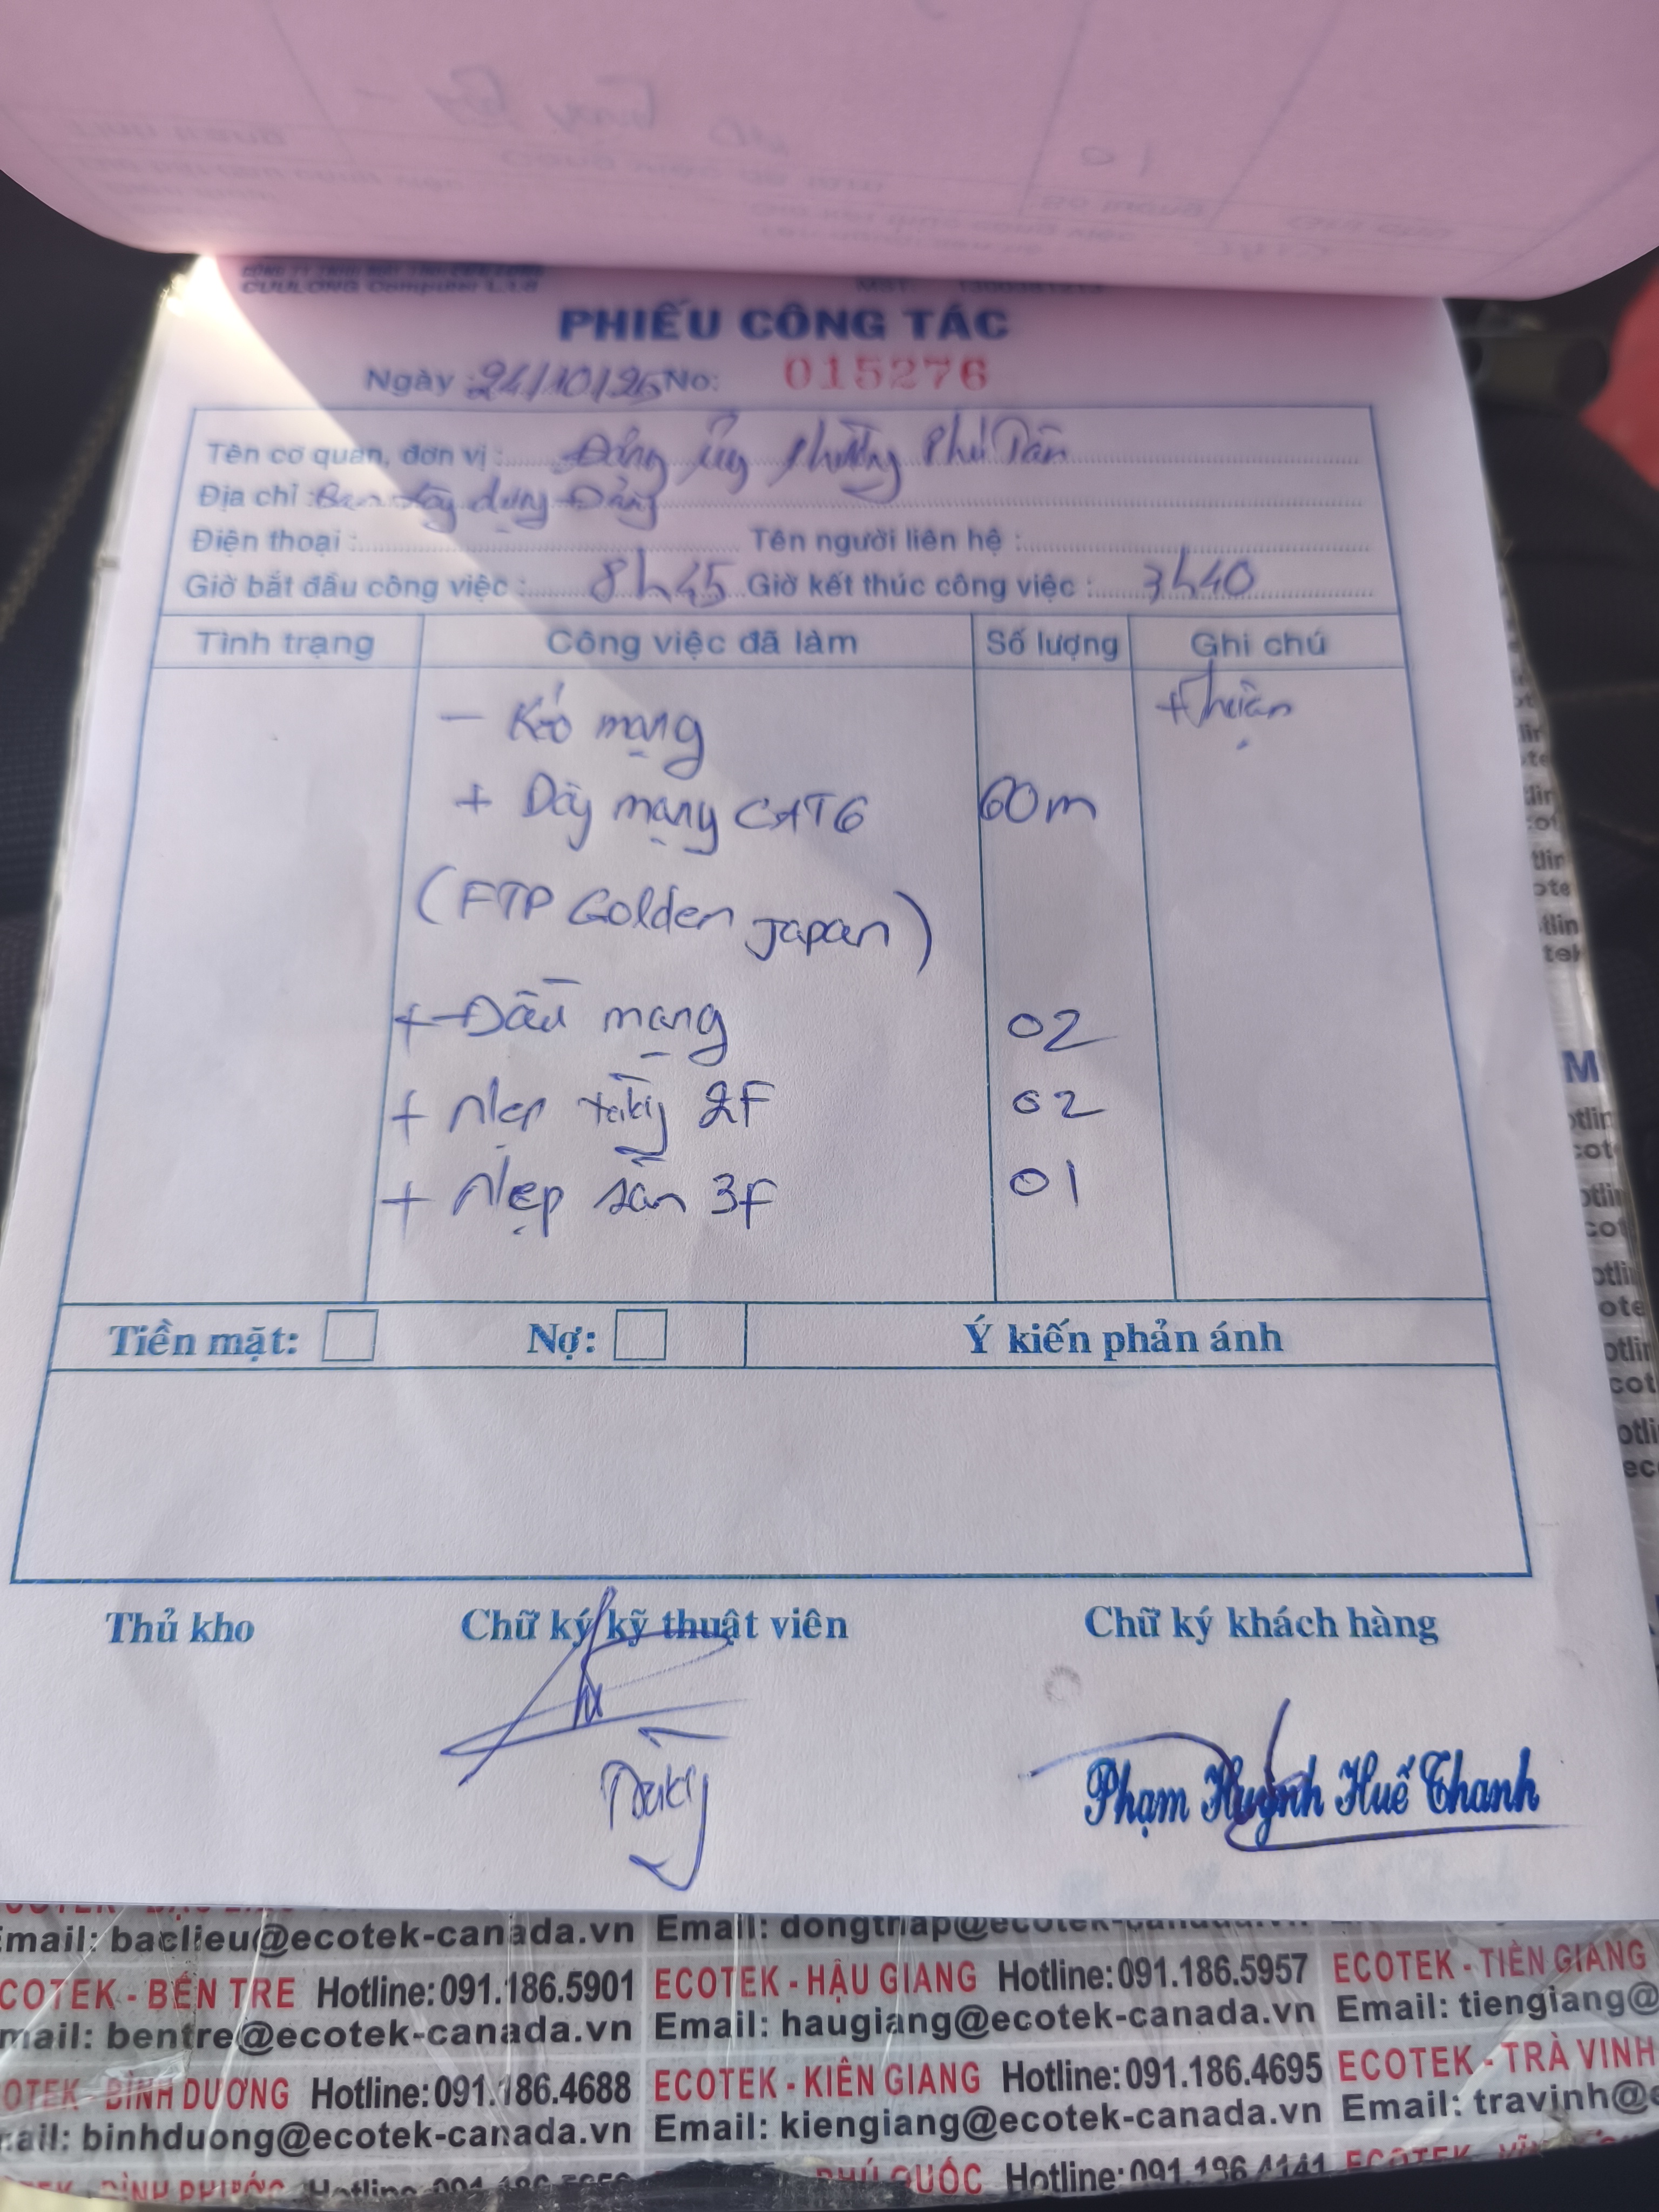 CUULONG Computer Ltd
PHIẾU CÔNG TÁC
Ngày : 24/10/25 No: 015276
Tên cơ quan, đơn vị : Đảng ủy Phường Phú Tân
Địa chỉ : Ban xây dựng Đảng
Điện thoại : Tên người liên hệ :
Giờ bắt đầu công việc : 8h45 Giờ kết thúc công việc : 3h40
Tình trạng Công việc đã làm Số lượng Ghi chú
- Kéo mạng
+ Dây mạng CAT6 60m
(FTP Golden Japan)
+ Đầu mạng 02
+ Nẹp 2F 02
+ Nẹp sàn 3F 01
Tiền mặt: Nợ: Ý kiến phản ánh
Thủ kho Chữ ký kỹ thuật viên Chữ ký khách hàng
Phạm Huỳnh Huế Thanh
Email: baclieu@ecotek-canada.vn Email: dongthap@ecotek-canada.vn
ECOTEK - BẾN TRE Hotline: 091.186.5901 ECOTEK - HẬU GIANG Hotline: 091.186.5957 ECOTEK - TIỀN GIANG
mail: bentre@ecotek-canada.vn Email: haugiang@ecotek-canada.vn Email: tiengiang@
OTEK - BÌNH DƯƠNG Hotline: 091.186.4688 ECOTEK - KIÊN GIANG Hotline: 091.186.4695 ECOTEK - TRÀ VINH
ail: binhduong@ecotek-canada.vn Email: kiengiang@ecotek-canada.vn Email: travinh@e
PHÚ QUỐC Hotline: 091.196.4141